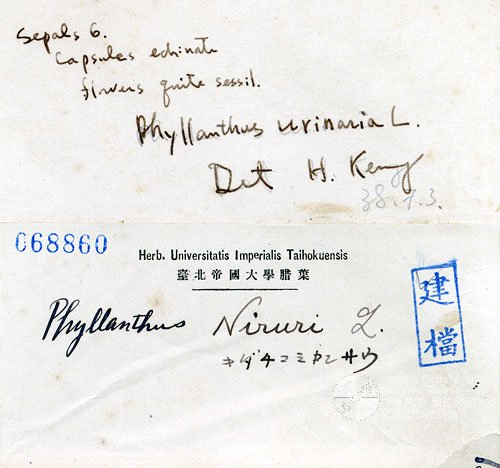 Sepals 6.
Capsules echinate
flowers quite sessil.
Phyllanthus urinaria L.
Det H. Keng
38.9.3.
068860
Herb. Universitatis Imperialis Taihokuensis
臺北帝國大學腊葉
Phyllanthus Niruri L.
キダチコミカンサウ
建檔